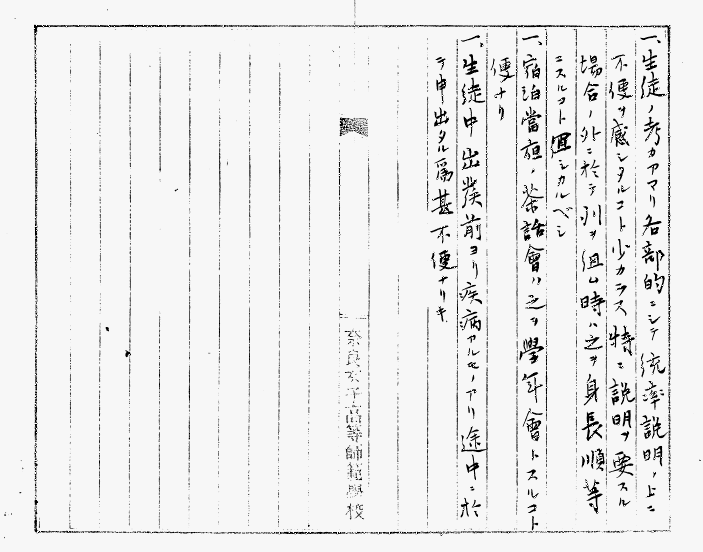 一、生徒ノ考カアマリ各部的ニシテ統率説明ノ上ニ
不便ヲ感シタルコト少カラス特ニ説明ヲ要スル
場合ノ外ニ於テ列ヲ組ム時ハ之ヲ身長順等
ニスルコト宜シカルベシ
一、宿泊當夜ノ茶話會ハ之ヲ學年會トスルコト
便ナリ
一、生徒中出発前ヨリ疾病アルモノアリ途中ニ於
テ申出タル為甚不便ナリキ
奈良女子高等師範學校